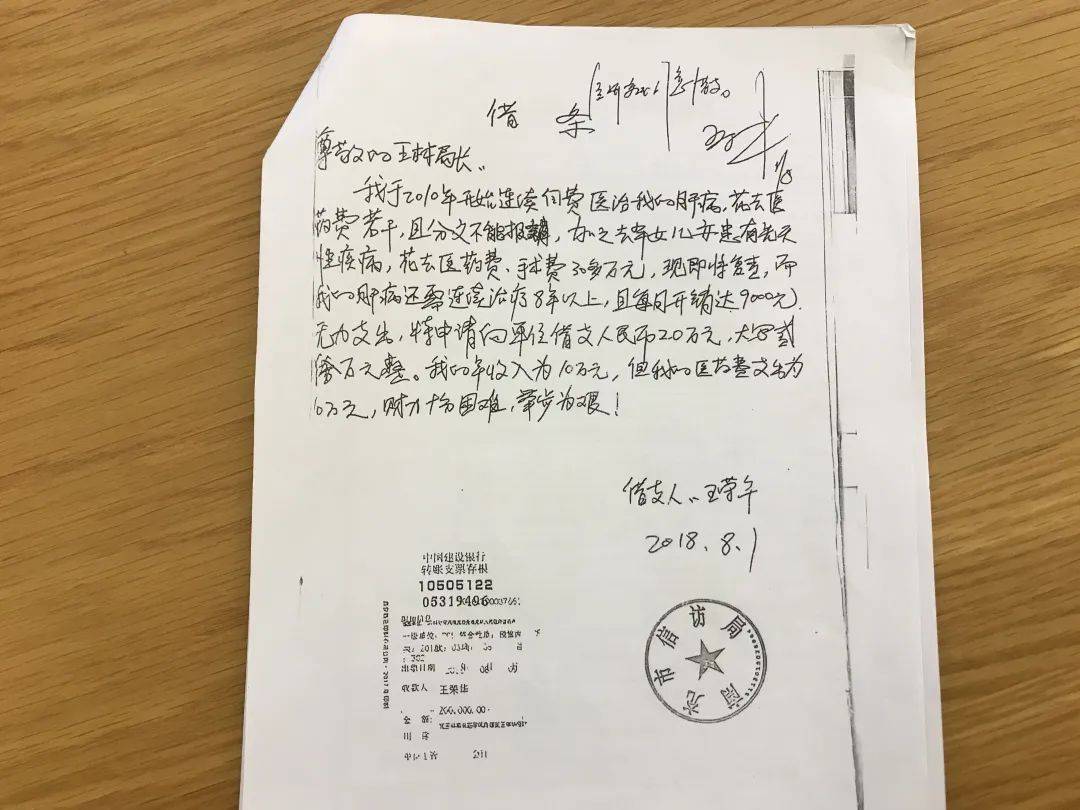 借 条
尊敬的王林局长:
我于2010年开始连续自费医治我的肝病,花去医
药费若干,且分文不能报销,加之去年女儿亦患有先天
性疾病,花去医药费、手术费30多万元,现即将复查,而
我的肝病还需连续治疗8年以上,且每月开销达9000元.
无力支出,特申请向单位借支人民币20万元,大写贰
拾万元整。我的年收入为10万元,但我的医药费支出为
10万元,财力十分困难,举步为艰!
借支人:王荣华
2018.8.1
中国建设银行
转账支票存根
10505122
05319496
出票日期
收款人 王荣华
200,000.00
市信访局